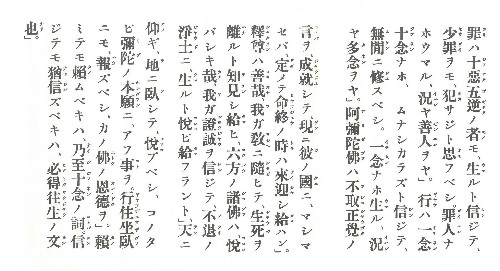 罪ハ十惡五逆ノ者モ、生ルト信ジテ、
少罪ヲモ犯サジト思フベシ。罪人ナ
ホウマル、況ヤ善人ヲヤ」。行ハ一念
十念ナホ、ムナシカラズト信ジテ、
無間ニ修スベシ。一念ナホ生ル、況
ヤ多念ヲヤ」。阿彌陀佛ハ不取正覺ノ
言ヲ成就シテ現ニ彼ノ國ニ、マシマ
セバ定ノテ命終ノ時ハ來迎シ給ハン」。
釋尊ハ善哉我ガ敎ニ隨ヒテ、生死ヲ
離ルト知見シ給ヒ、六方ノ諸佛ハ、悅
バシキ哉、我ガ證誠ヲ信ジテ、不退ノ
淨土ニ、生ルト悅ビ給フラント」。天ニ
仰ギ、地ニ臥シテ、悅ブベシ、コノタ
ビ彌陀ノ本願ニ、アフ事ヲ。行住坐臥
ニモ、報ズベシ、カノ佛ノ恩德ヲ」。賴
ミテモ賴ムベキハ、乃至十念ノ詞、信
ジテモ猶信ズベキハ、必得往生ノ文
也」。